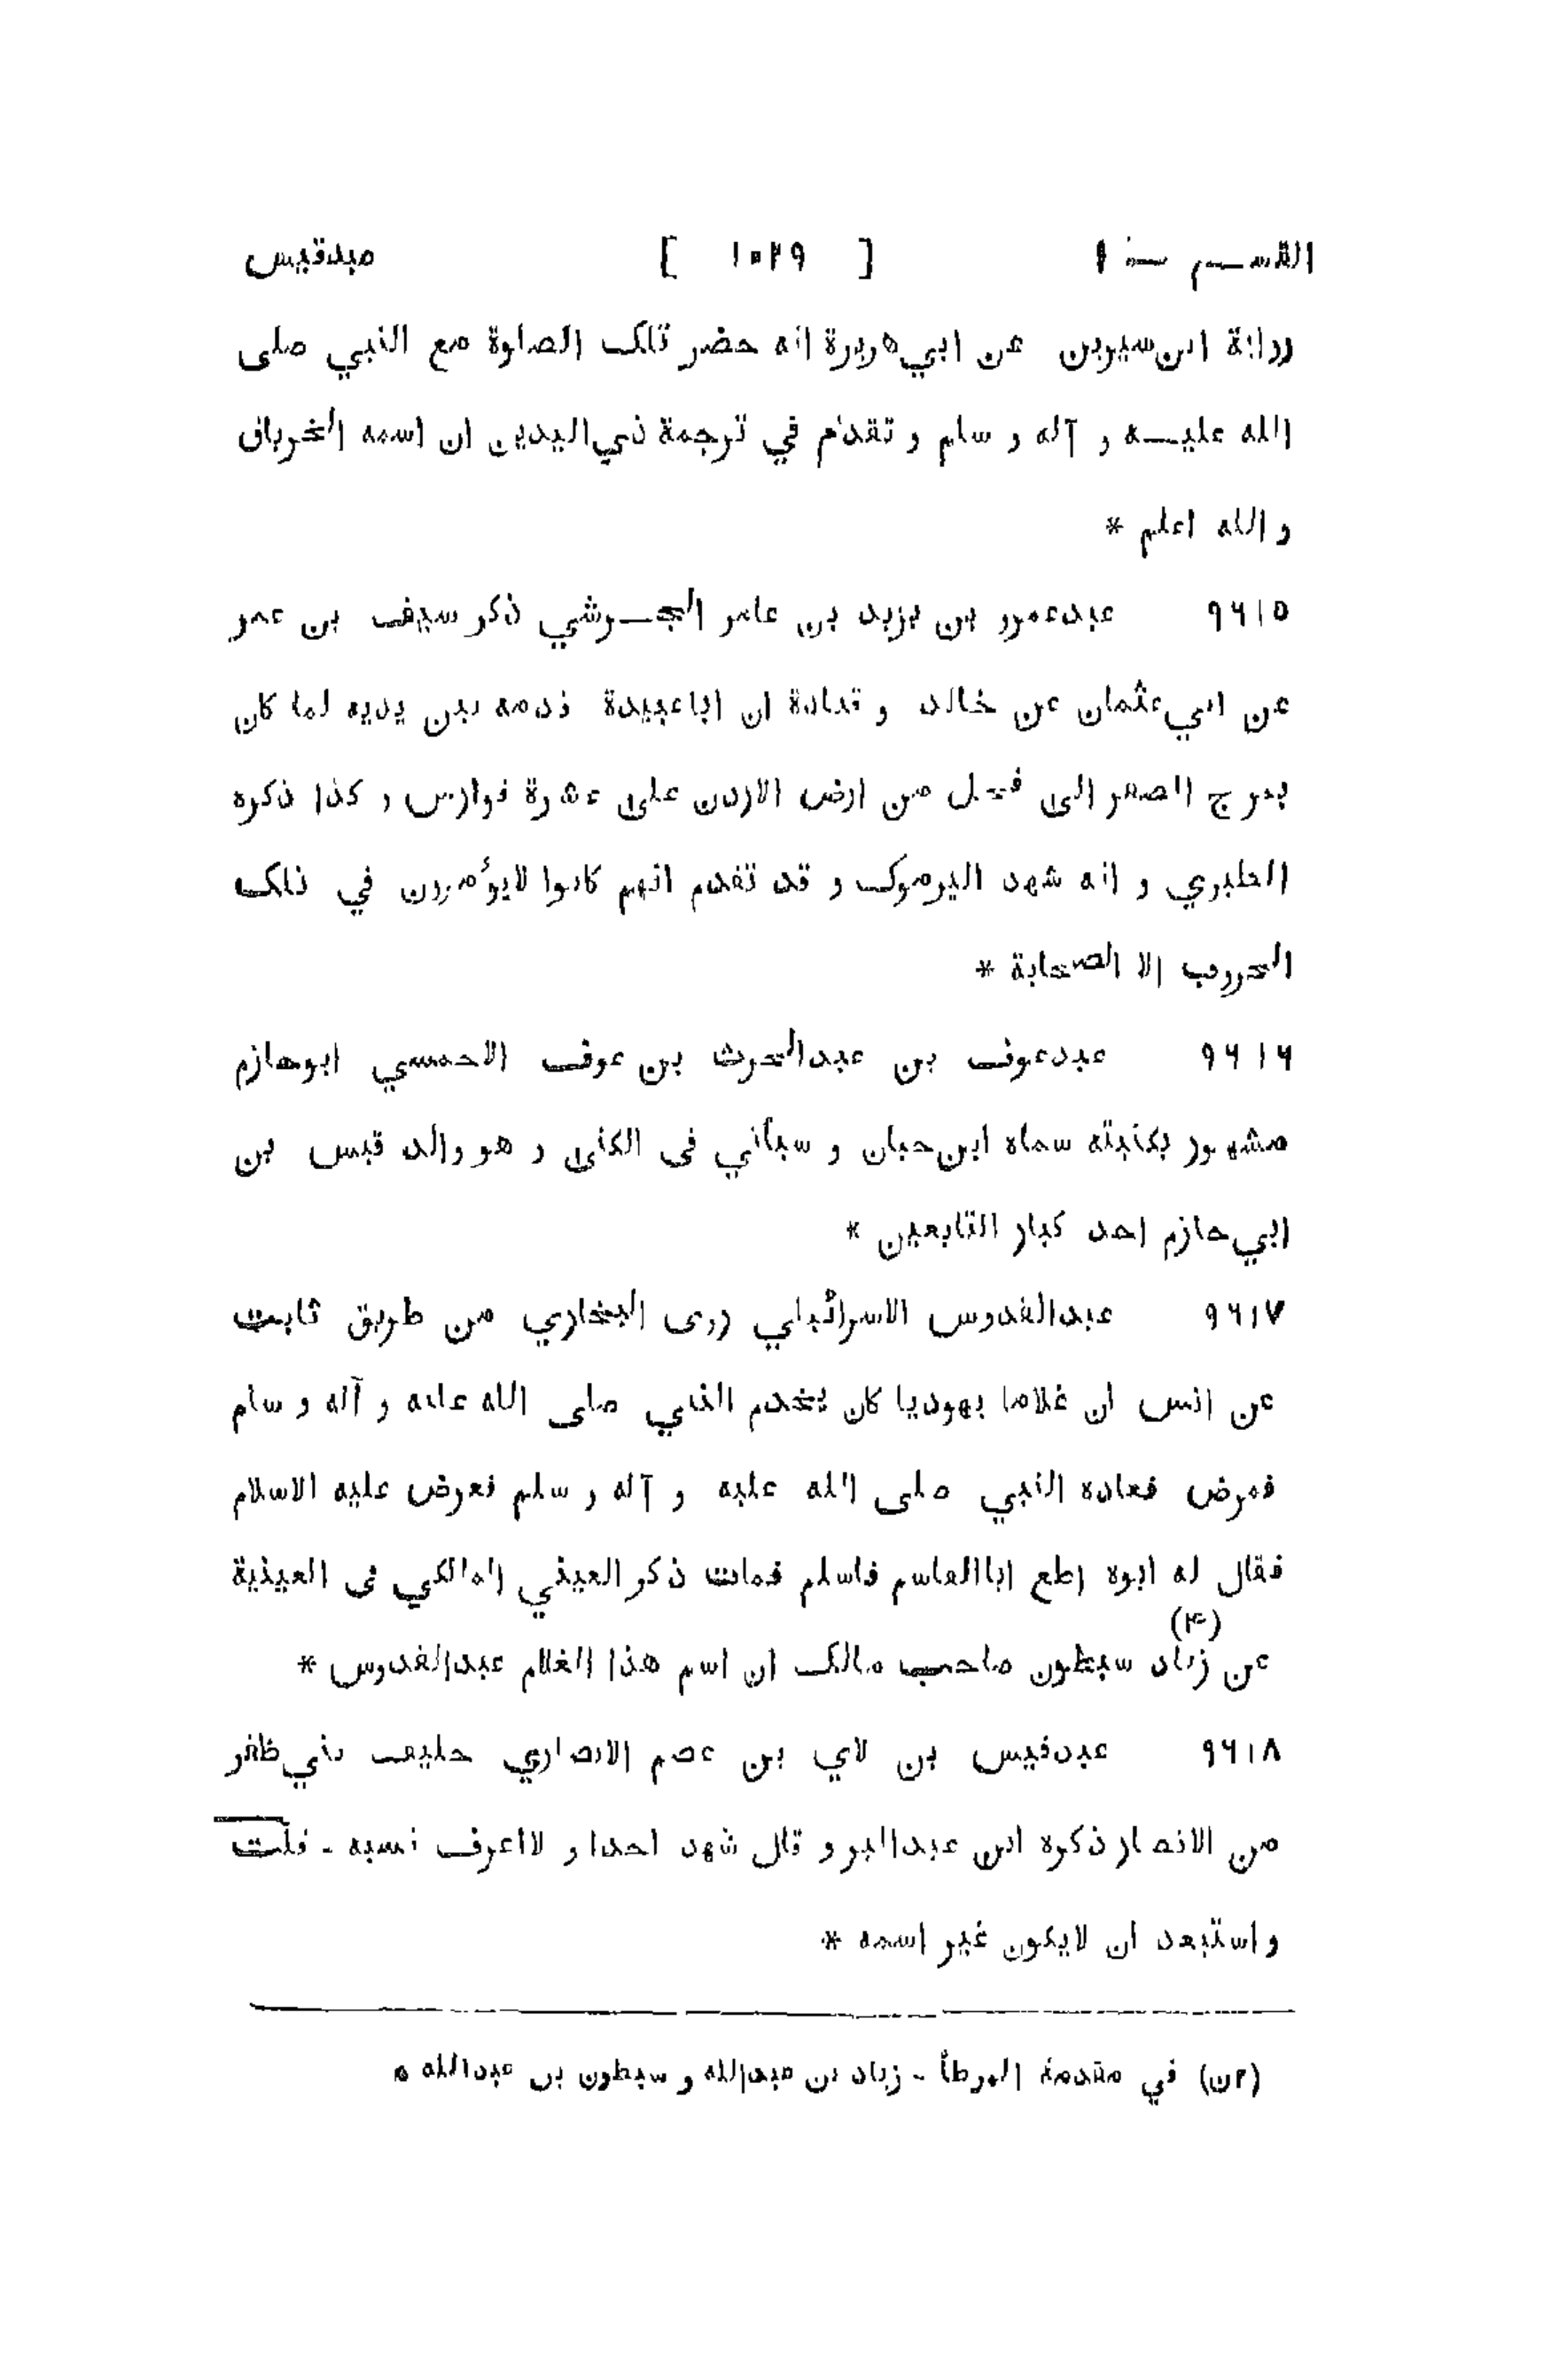 القسم سنة ١ [ ١٠٢٩ ] عبدقيس
رواية ابن سيرين عن ابي هريرة انه حضر تلك الصلوة مع النبي صلى
الله عليه و آله و سلم و تقدم في ترجمة ذي اليدين ان اسمه الخرباق
و الله اعلم *
٩٦١٥ عبدعمرو بن يزيد بن عامر الجرشي ذكر سيف بن عمر
عن ابي عثمان عن خالد و قتادة ان اباعبيدة قدمه بين يديه لما كان
بمرج الصفر الى فحل من ارض الاردن على عشرة فوارس و كذا ذكره
الطبري و انه شهد اليرموك و قد تقدم انهم كانوا لايؤمرون في ذلك
الحروب الا الصحابة *
٩٦١٦ عبدعوف بن عبدالحرث بن عوف الاحمسي ابوحازم
مشهور بكنيته سماه ابن حبان و سيأتي فى الكنى و هو والد قيس بن
ابي حازم احد كبار التابعين *
٩٦١٧ عبدالقدوس الاسرائيلي روى البخاري من طريق ثابت
عن انس ان غلاما يهوديا كان يخدم النبي صلى الله عليه و آله و سلم
فمرض فعاده النبي صلى الله عليه و آله و سلم فعرض عليه الاسلام
فقال له ابوه اطع اباالقاسم فاسلم فمات ذكر العيني المالكي فى العينية
(٢)
عن زياد سبطون صاحب مالك ان اسم هذا الغلام عبدالقدوس *
٩٦١٨ عبدقيس بن لاي بن عصم الانصاري حليف بني ظفر
من الانصار ذكره ابن عبدالبر و قال شهد احدا و لااعرف نسبه - قلت
و استبعد ان لايكون غير اسمه *
(٢ن) في مقدمة الموطأ - زياد بن عبدالله و سبطون بن عبدالله ه